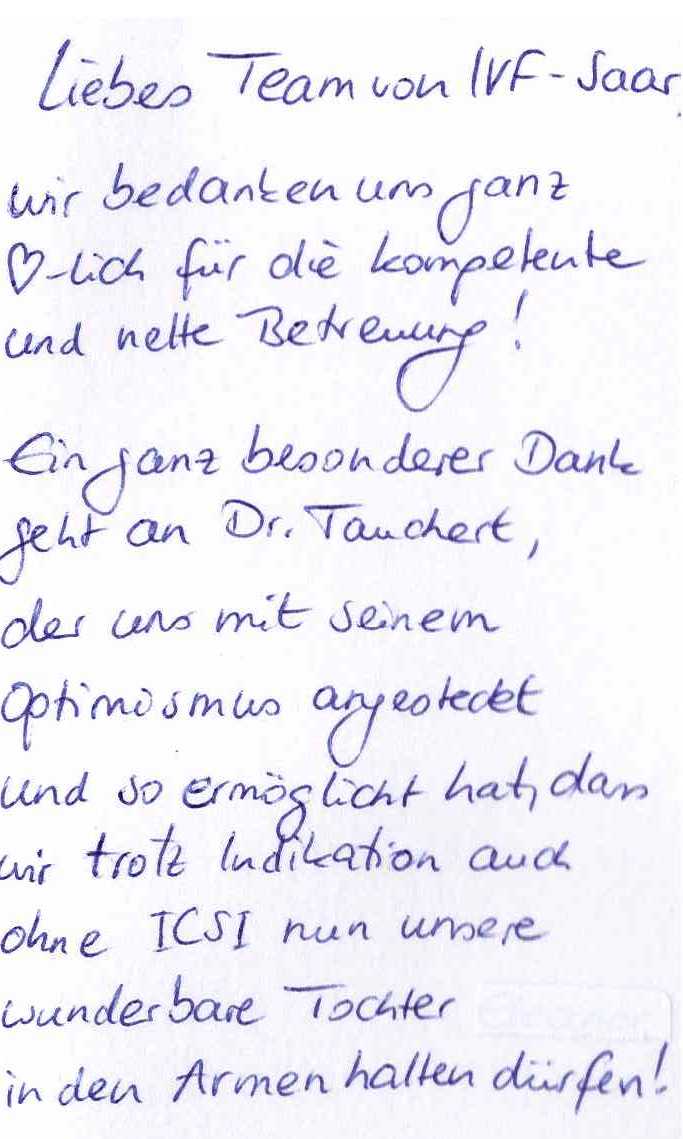 Liebes Team von IVF-Saar,
wir bedanken uns ganz
♡-lich für die kompetente
und nette Betreuung!
Ein ganz besonderer Dank
geht an Dr. Tauchert,
der uns mit seinem
Optimismus angesteckt
und so ermöglicht hat, dass
wir trotz Indikation auch
ohne ICSI nun unsere
wunderbare Tochter
in den Armen halten dürfen!